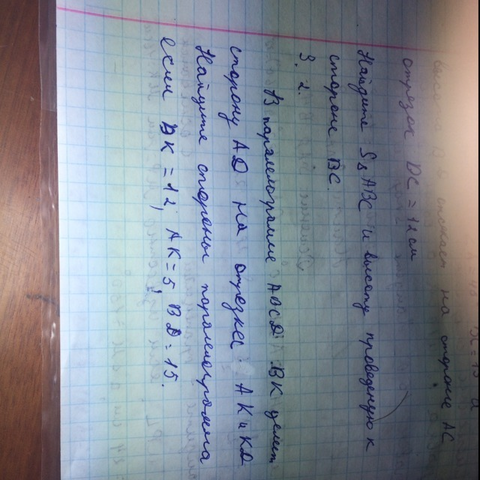 на стороне AC
отрезок DC = 12 см
Найдите S△ABC и высоту проведеную к
стороне BC
3. 2.
В паралелограмме ABCD BK делит
сторону AD на отрезкес AK и KD
Найдите стороны паралелограмма
если BK = 12, AK = 5, BD = 15.